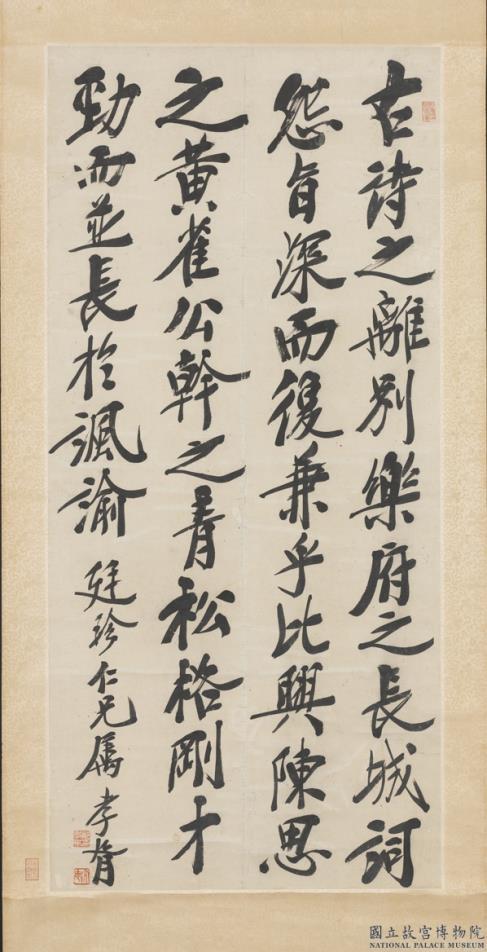 古詩之離別樂府之長城詞
怨旨深而復兼乎比興陳思
之黃雀公幹之青松格剛才
勁而並長於諷諭
廷珍仁兄屬 孝胥
國立故宮博物院
NATIONAL PALACE MUSEUM